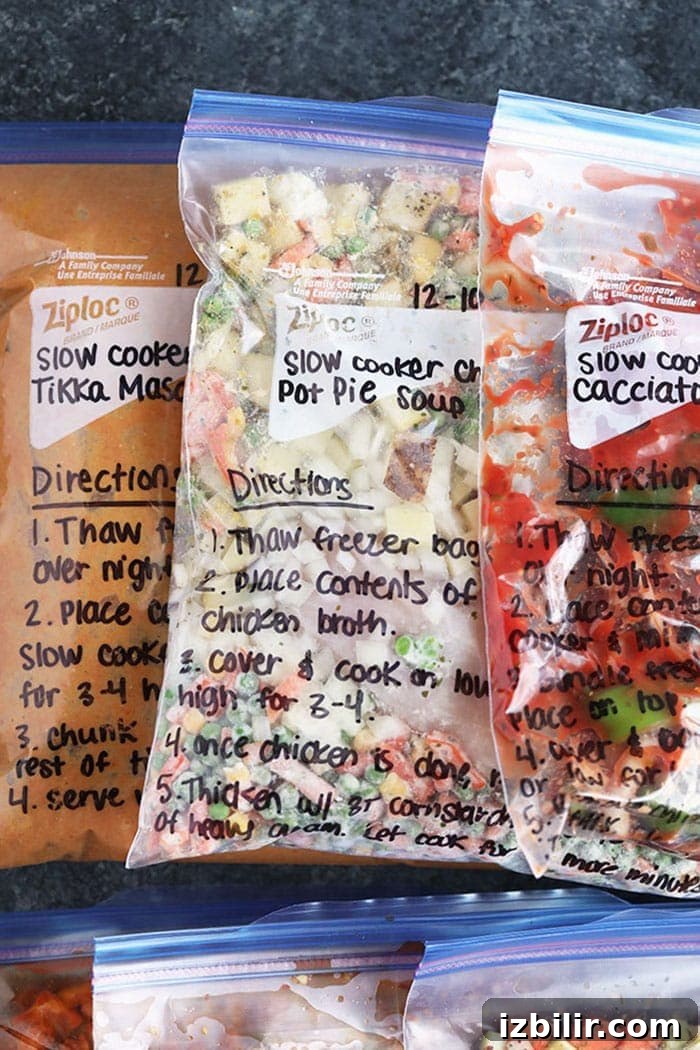 Johnson
A Family Company
Une Entreprise Familiale
12
Ziploc®
BRAND/MARQUE
Slow cooker
Tikka Mas
Directions
1. Thaw f
over night
2. Place co
Slow cook
for 3-4 h
3. chunk
rest of
4. serve
Johnson
A Family Company
Une Entreprise Familiale
12-10
Ziploc®
BRAND/MARQUE
Slow cooker ch
Pot Pie Soup
Directions
1. Thaw freezer bag
2. Place contents of
chicken broth.
3. cover & cook on low
high for 3-4.
4. once chicken is done,
5. Thicken w/ 3T cornstarch
of heavy cream. Let cook for
more minutes
Ziploc®
BRAND/MARQUE
Slow coo
Cacciato
Direction
1. Thaw freez
over night.
2. Place cont
cooker &
3. Bundle fres
Place on top.
4. Cover &
or low for
5.
izbilir.com